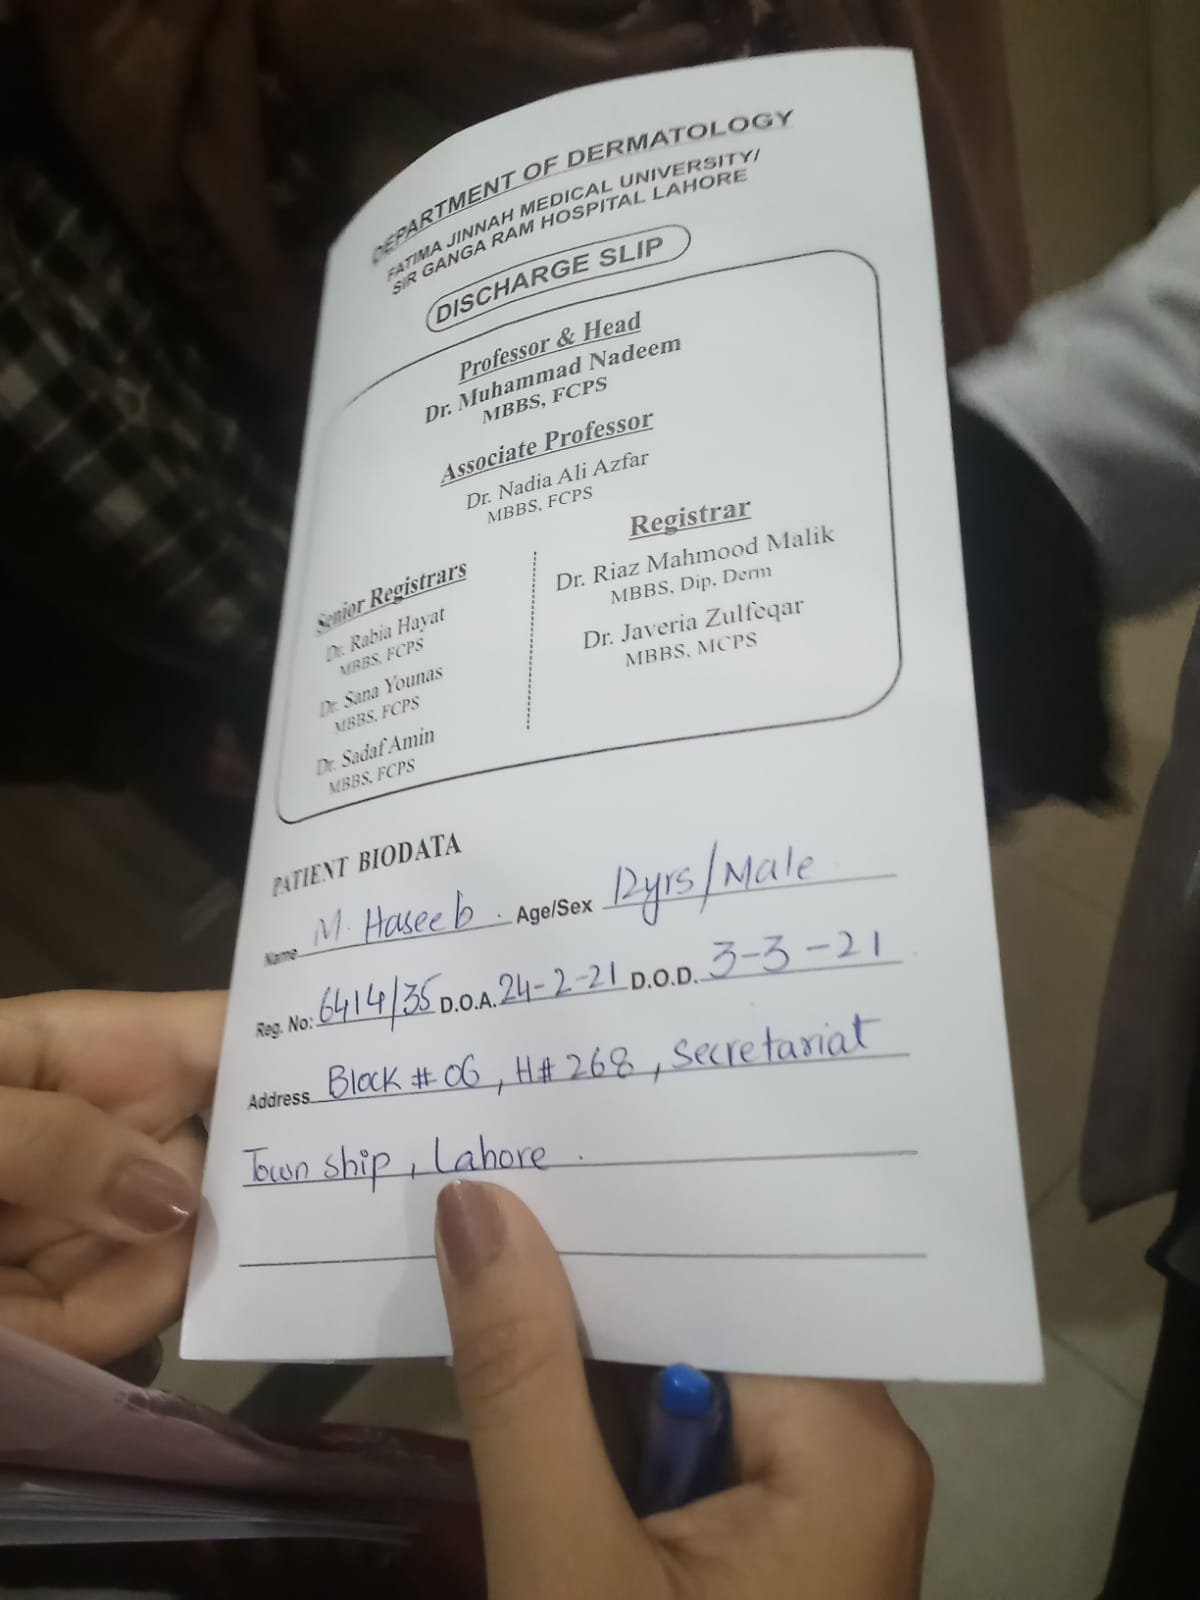 DEPARTMENT OF DERMATOLOGY
FATIMA JINNAH MEDICAL UNIVERSITY/
SIR GANGA RAM HOSPITAL LAHORE
DISCHARGE SLIP
Professor & Head
Dr. Muhammad Nadeem
MBBS, FCPS
Associate Professor
Dr. Nadia Ali Azfar
MBBS, FCPS
Senior Registrars
Dr. Rabia Hayat
MBBS, FCPS
Dr. Sana Younas
MBBS, FCPS
Dr. Sadaf Amin
MBBS, FCPS
Registrar
Dr. Riaz Mahmood Malik
MBBS, Dip. Derm
Dr. Javeria Zulfeqar
MBBS, MCPS
PATIENT BIODATA
Name M. Haseeb . Age/Sex 12yrs/Male
Reg. No: 6414/35 D.O.A. 24-2-21 D.O.D. 3-3-21
Address Block # 06, H# 268, Secretariat
Town ship, Lahore .